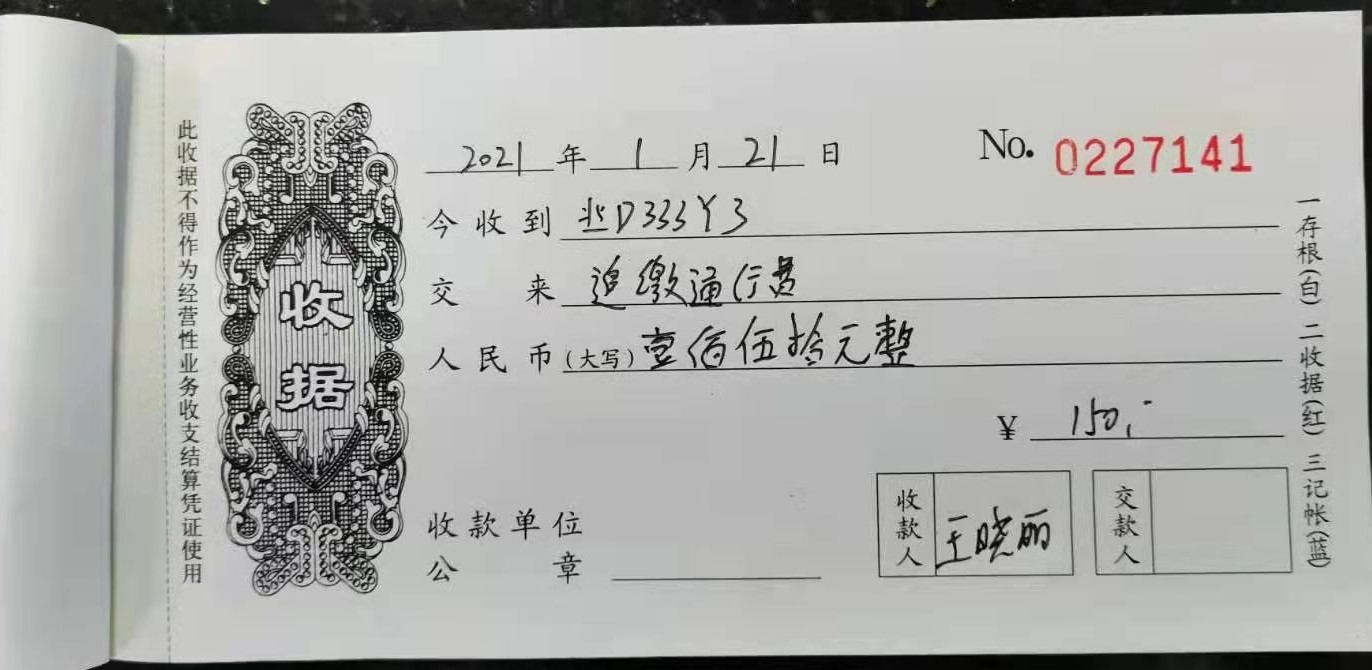 此收据不得作为经营性业务收支结算凭证使用
收据
2021年1月21日
No. 0227141
今收到 D333Y3
交来 追缴通行费
人民币(大写)壹佰伍拾元整
¥ 150.-
收款单位
公章
收款人 王晓丽
交款人
一存根(白) 二收据(红) 三记帐(蓝)